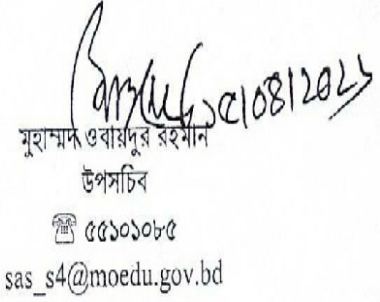 ১৫/০৪/২০২১
মুহাম্মদ ওবায়দুর রহমান
উপসচিব
☎ ৫৫১০১০৮৫
sas_s4@moedu.gov.bd